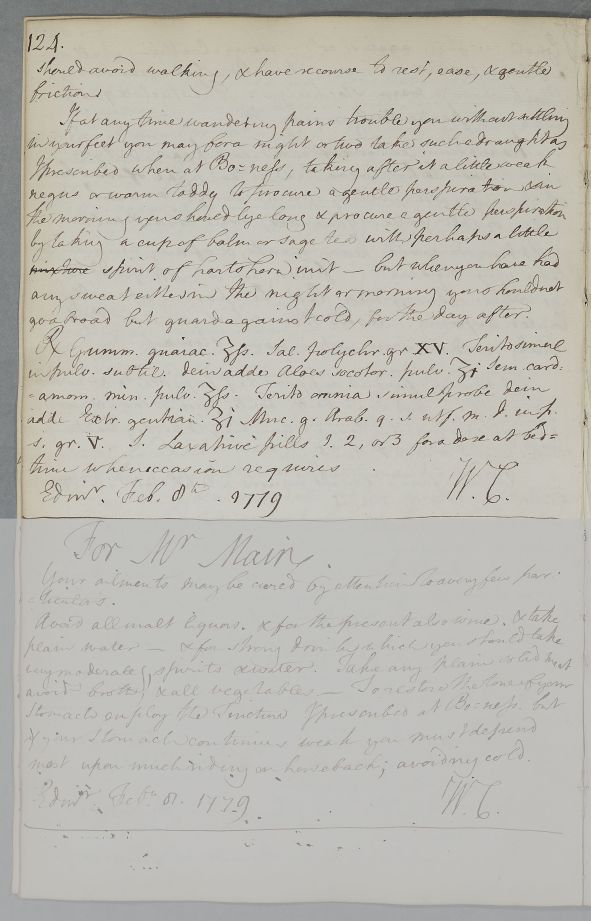 124.
should avoid walking, & have recourse to rest, ease, & gentle
friction
If at any time wandering pains trouble you without settling
in your feet you may for a night or two take such a draught as
I prescribed when at Bo=ness, taking after it a little weak
negus or warm toddy to procure a gentle perspiration &in
the morning you should lye long & procure a gentle perspiration
by taking a cup of balm or sage tea with perhaps a little
mixture spirit of hartshorn in it — but when you have had
any sweat either in the night or morning you should not
go abroad but guard against cold, for the day after.
℞ Gumm. guaiac. ʒſs. Sal. polychr. gr. XV. Terito simul
in pulv. subtil. dein adde Aloes socotor. pulv. ʒi Sem. card:
=amom. min. pulv. ʒſs. Terito omnia simul probe dein
adde Extr. gentian. ʒi Muc. g. Arab. q. s. ut f. m. d. in p.
s. gr. V. S. Laxative pills 1. 2, or 3 for a dose at bed=
time when occasion requires
Edinr. Feb. 8th. 1779 W. C.
For Mr Main
Your ailments may be cured by attention to a very few par:
=ticulars.
Avoid all malt liquors. & for the present also wine, & take
plain water — & for strong drink which you should take
very moderately, spirits & water. Take any plain solid meat
avoid broths & all vegetables — To restore the tone of your
stomach employ the Tincture I prescribed at Bo=ness. but
if your stomach continues weak you must depend
most upon much riding on horseback; avoiding cold.
Edinr. Feb. 8. 1779 W. C.